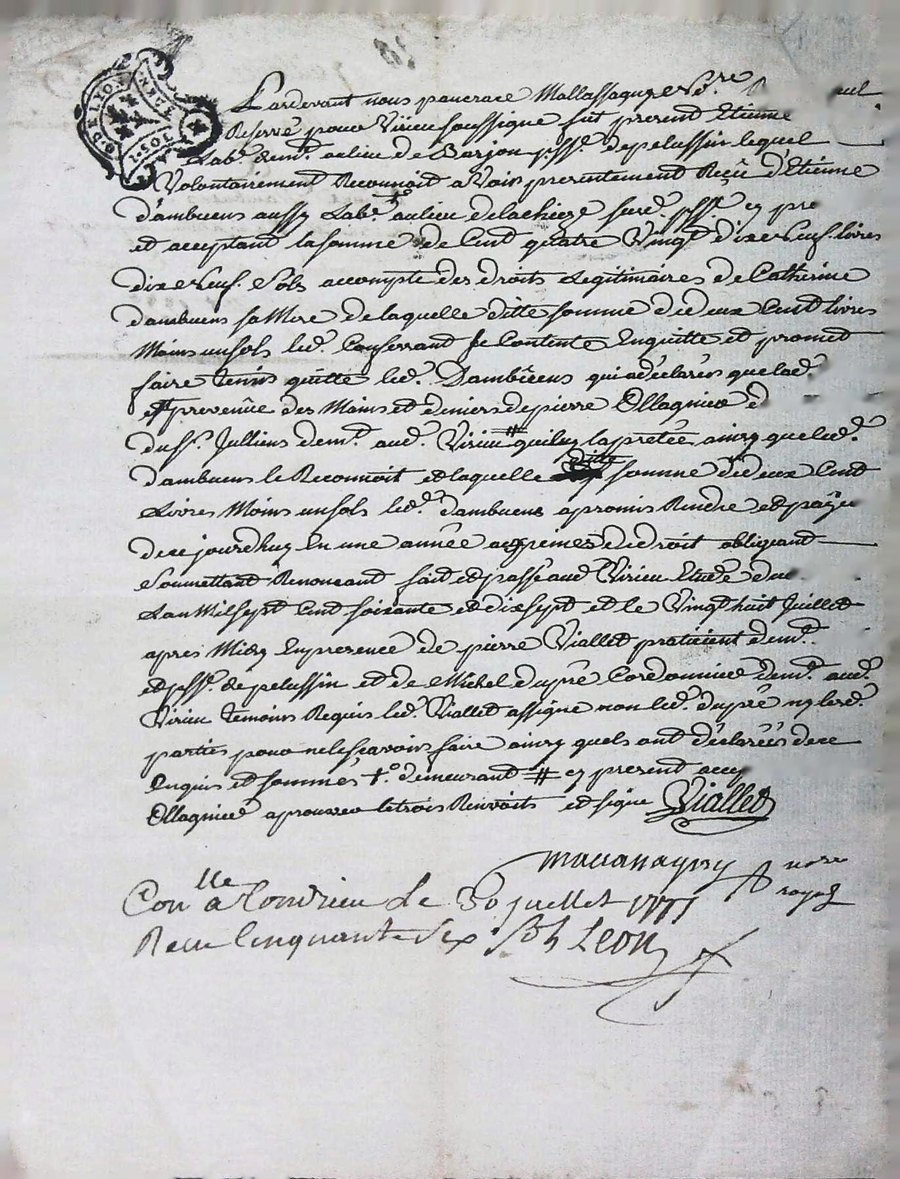 G. DE LYON
Pardevant nous pancrace Mallassagny No.re
Reservé pour Virieu soussigné fut present Etienne
Lab.r dem.t au lieu de Barjon p.sse de pelussin lequel
Volontairement Reconnoit avoir presentement Reçu d'Etienne
d'ambuens aussy Lab.r au lieu de la chieze surd. p.sse cy pre
et acceptant la somme de Cent quatre Vingt dix neuf livres
dix neuf sols accompte des droits Legitimaires de Catherine
dambuens sa Mere de laquelle ditte somme de deux Cent livres
Moins un sols led. Conferrant se Contente Enquitte et promet
faire tenir quitte led. Dambuens qui a déclarés que lad.
est provenüe des Mains et deniers de pierre Ollagnier
du S.t Jullien dem.t aud. Virieu # qui luy la pretée ainsy que led.
dambuens le Reconnoit et laquelle ditte somme de deux Cent
Livres Moins un sols led. dambuens a promis Rendre et payer
de ce jourdhuy En une année a peines de droit obligeant
Soumettant Renoncant fait et passé aud. Virieu Etude du
L'an Mil sept Cent soixante et dix sept et le Vingt huit Juillet
apres Midy En presence de pierre Viallet praticient dem.t
p.sse de pelussin et de Michel dupré Cordonnier dem.t aud.
Virieu temoins Requis led. Viallet a signé non led. dupré ny lesd.
parties pour ne le scavoir faire ainsy quels ont déclarées de ce
Enquis et sommés †.° demeurant # cy present
Ollagnier aprouver le trois Renvoits et signe Viallet
Mallassagny nore
royal
Con.lle a Condrieu Le 30 juellet 1777
Recu Cinquante six sols Leon